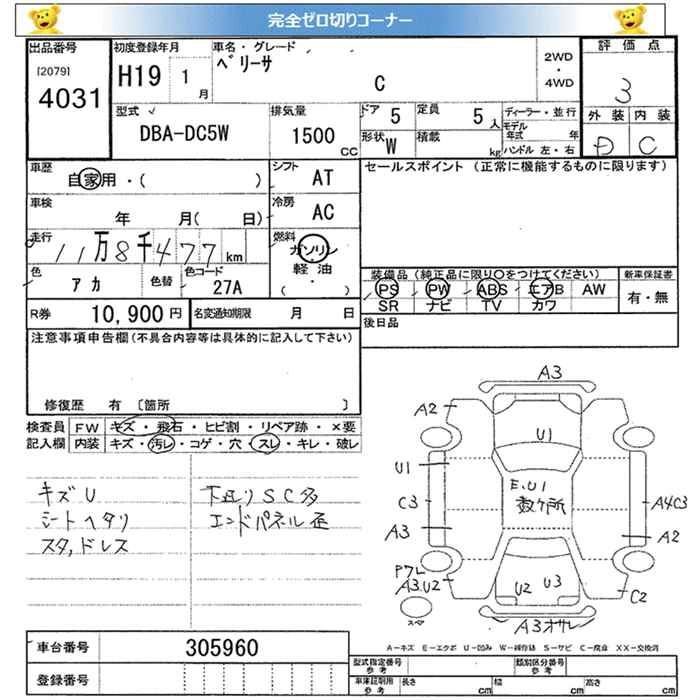 完全ゼロ切りコーナー
出品番号 初度登録年月 車名・グレード 評価点
[2079] 4031 H19 1月 ベリーサ C 2WD・4WD 3
型式 排気量 ドア 5 定員 5人 ディーラー・並行 外装 内装
DBA-DC5W 1500CC 形状 W 積載 kg モデル年式 年 ハンドル 左・右 D C
車歴 自家用・( ) シフト AT セールスポイント (正常に機能するものに限ります)
車検 年 月( 日) 冷房 AC
走行 11万8千477km 燃料 ガソリン 軽油 ( ・ )
色 アカ 色替 色コード 27A 装備品 (純正品に限り〇をつけてください) 新車保証書
PS PW ABS エアB AW 有・無
SR ナビ TV カワ
R券 10,900円 名変通知期限 月 日 後日品
注意事項申告欄(不具合内容等は具体的に記入して下さい)
修復歴 有 〔箇所 〕
検査員 FW キズ・飛石・ヒビ割・リペア跡・×要
記入欄 内装 キズ・汚レ・コゲ・穴・スレ・キレ・破レ
キズU 下廻りSC多
シートヘタリ エンドパネル歪
スタ,ドレス
A3
A2
U1
U1
E.U1
数ヶ所
C3 A4C3
A3 A2
A3.U2
U2 U3
C2
スペア
A3オサレ
A-キズ E-エクボ U-凹み W-補修跡 S-サビ C-腐食 XX-交換済
車台番号 305960
登録番号
型式指定番号 参考 類別区分番号 参考
車庫証明用 参考 長さ cm 幅 cm 高さ cm